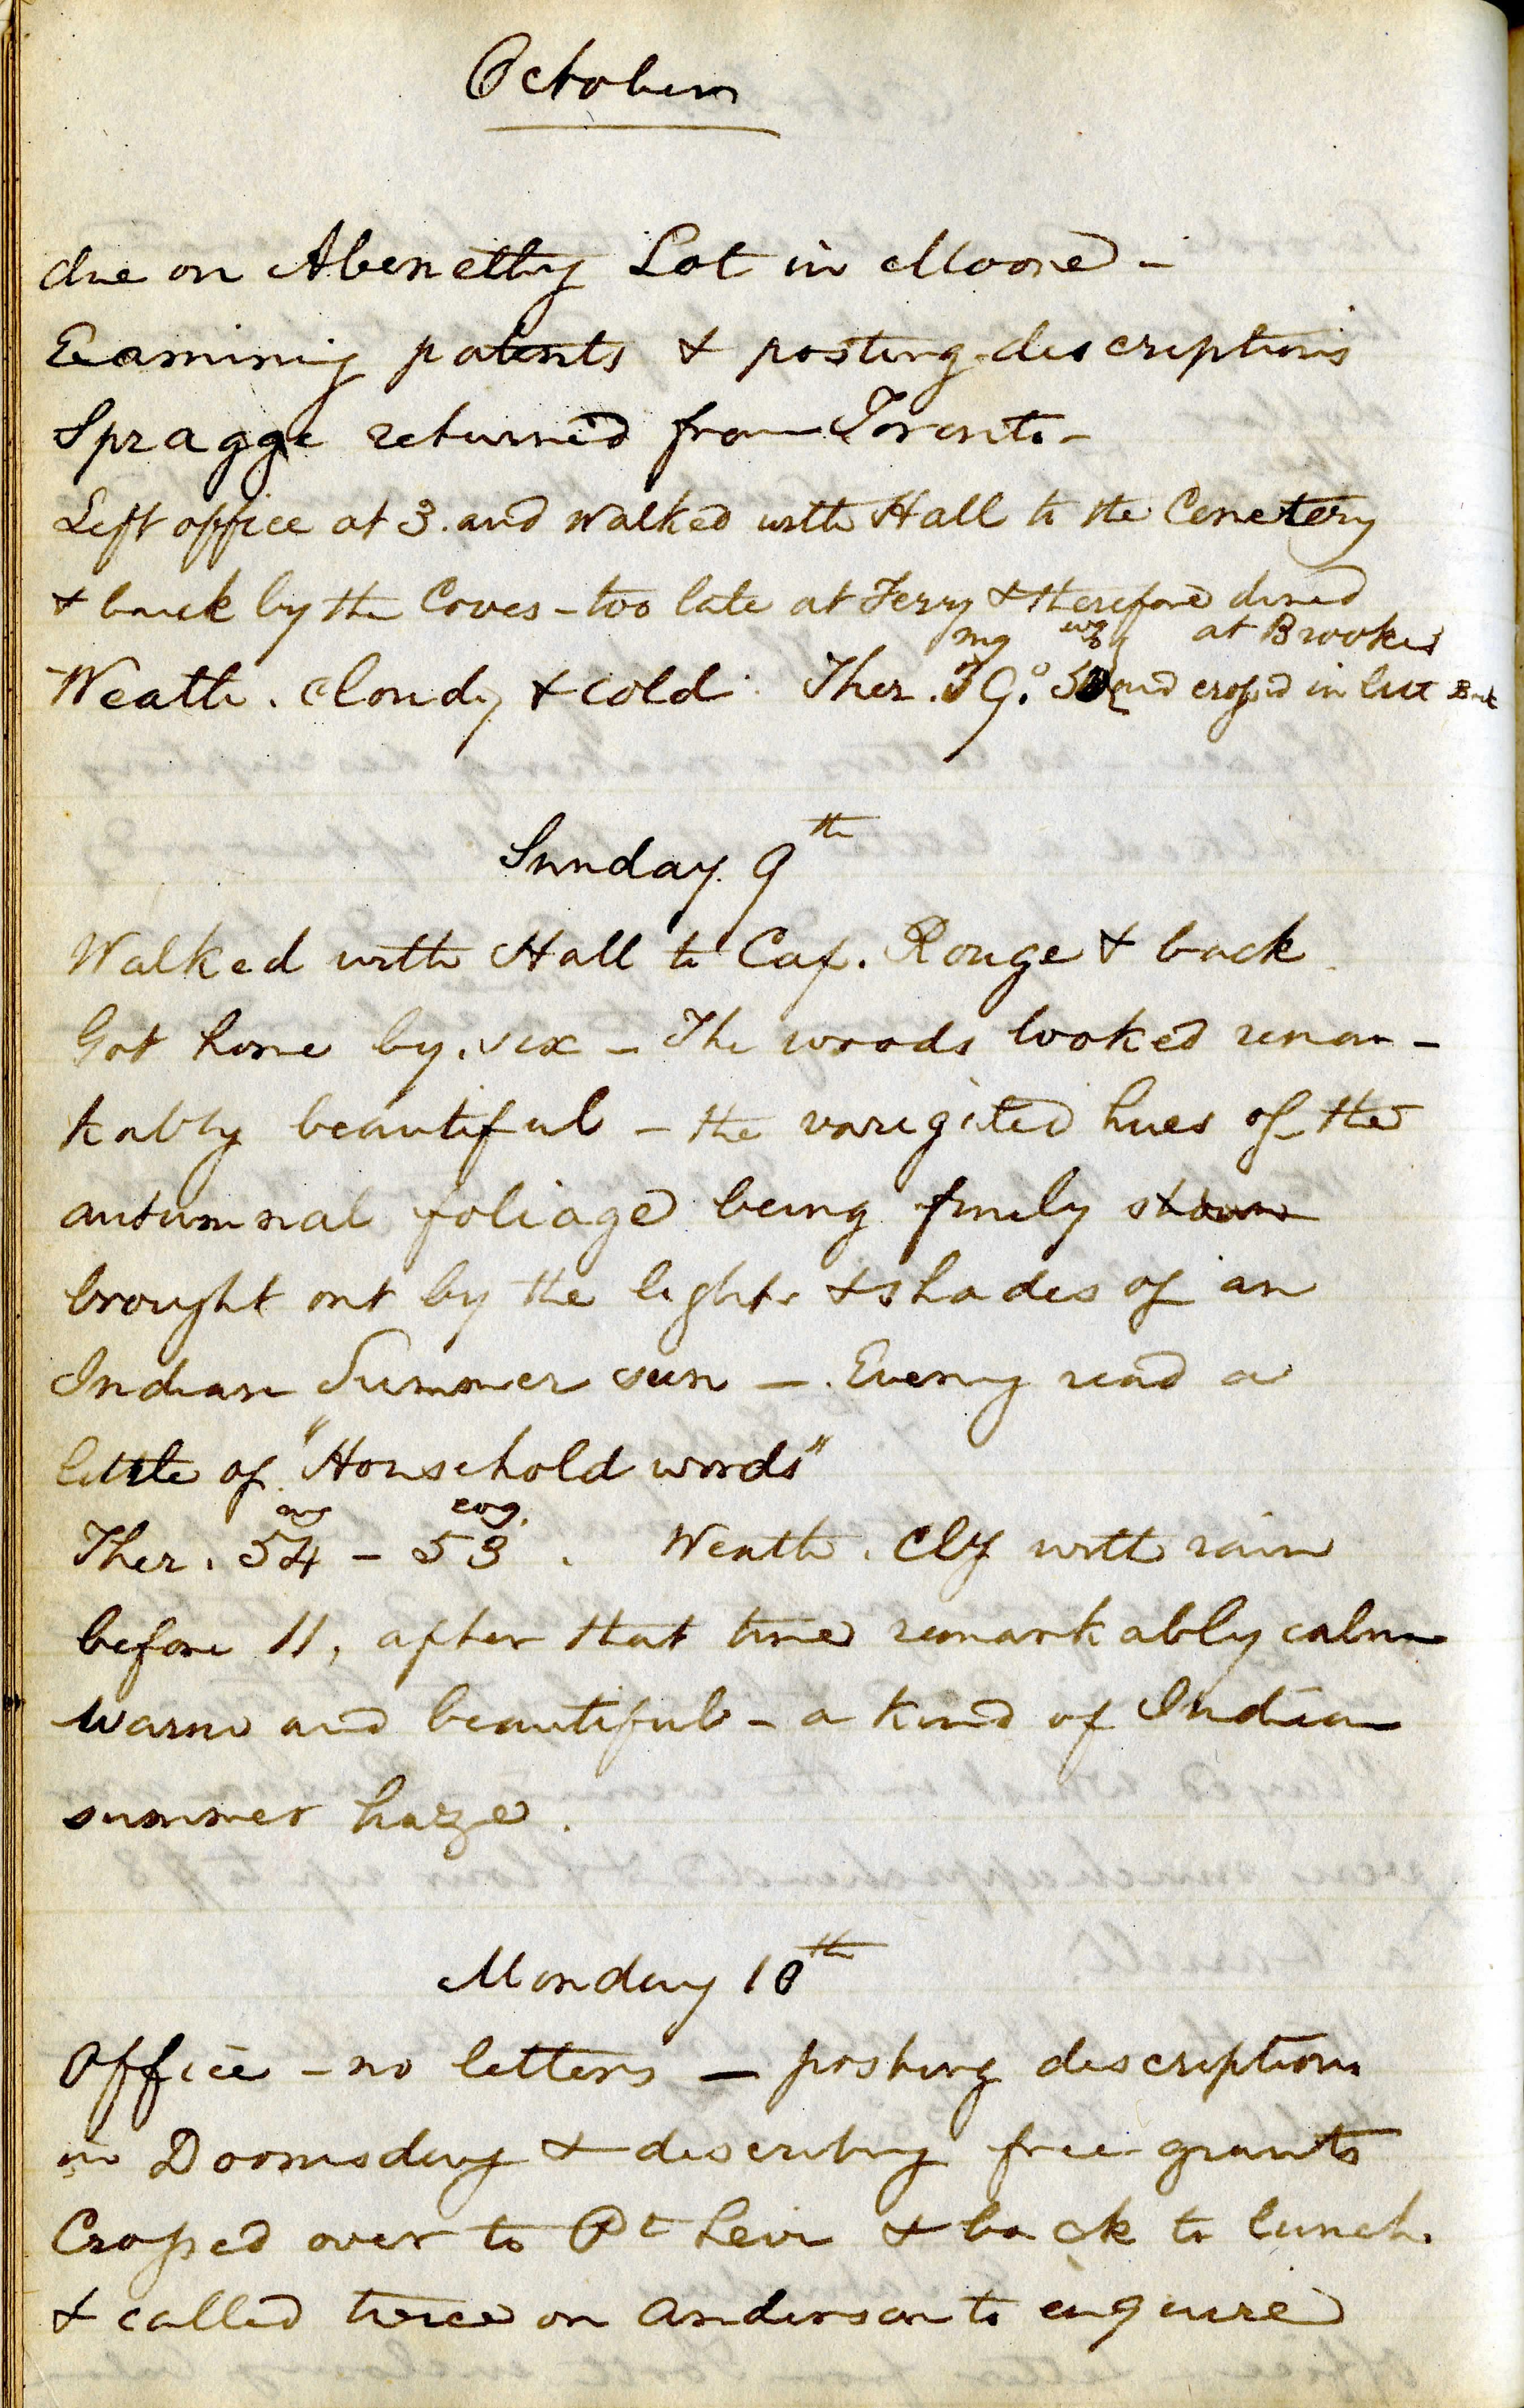 October
due on Abernethy Lot in Moore -
Examining patents & posting descriptions
Spragge returned from Toronto -
Left office at 3. and walked with Hall to the Cemetery
& back by the Coves - too late at Ferry & therefore dined
mg evg at Brookes
Weath. Cloudy & cold. Ther. 39.° and crossed in last Boat
Sunday 9th
Walked with Hall to Cap. Rouge & back
Got home by six - The woods looked remar-
kably beautiful - the varigated hues of the
autumnal foliage being finely shown
brought out by the lights & shades of an
Indian Summer sun - Evening read a
little of "Household words"
mg evg.
Ther. 54 - 53. Weath. Cly with rain
before 11, after that time remarkably calm
warm and beautiful - a kind of Indian
summer haze.
Monday 10th
Office - no letters - posting descriptions
in Doomsday & describing free grants
Crossed over to Pt Levi & back to lunch.
& called twice on Anderson to enquire